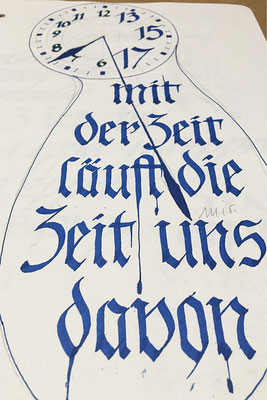 12 13
11
10 15
9
8 17
7 6
mit
der Zeit
läuft die
Zeit uns
davon